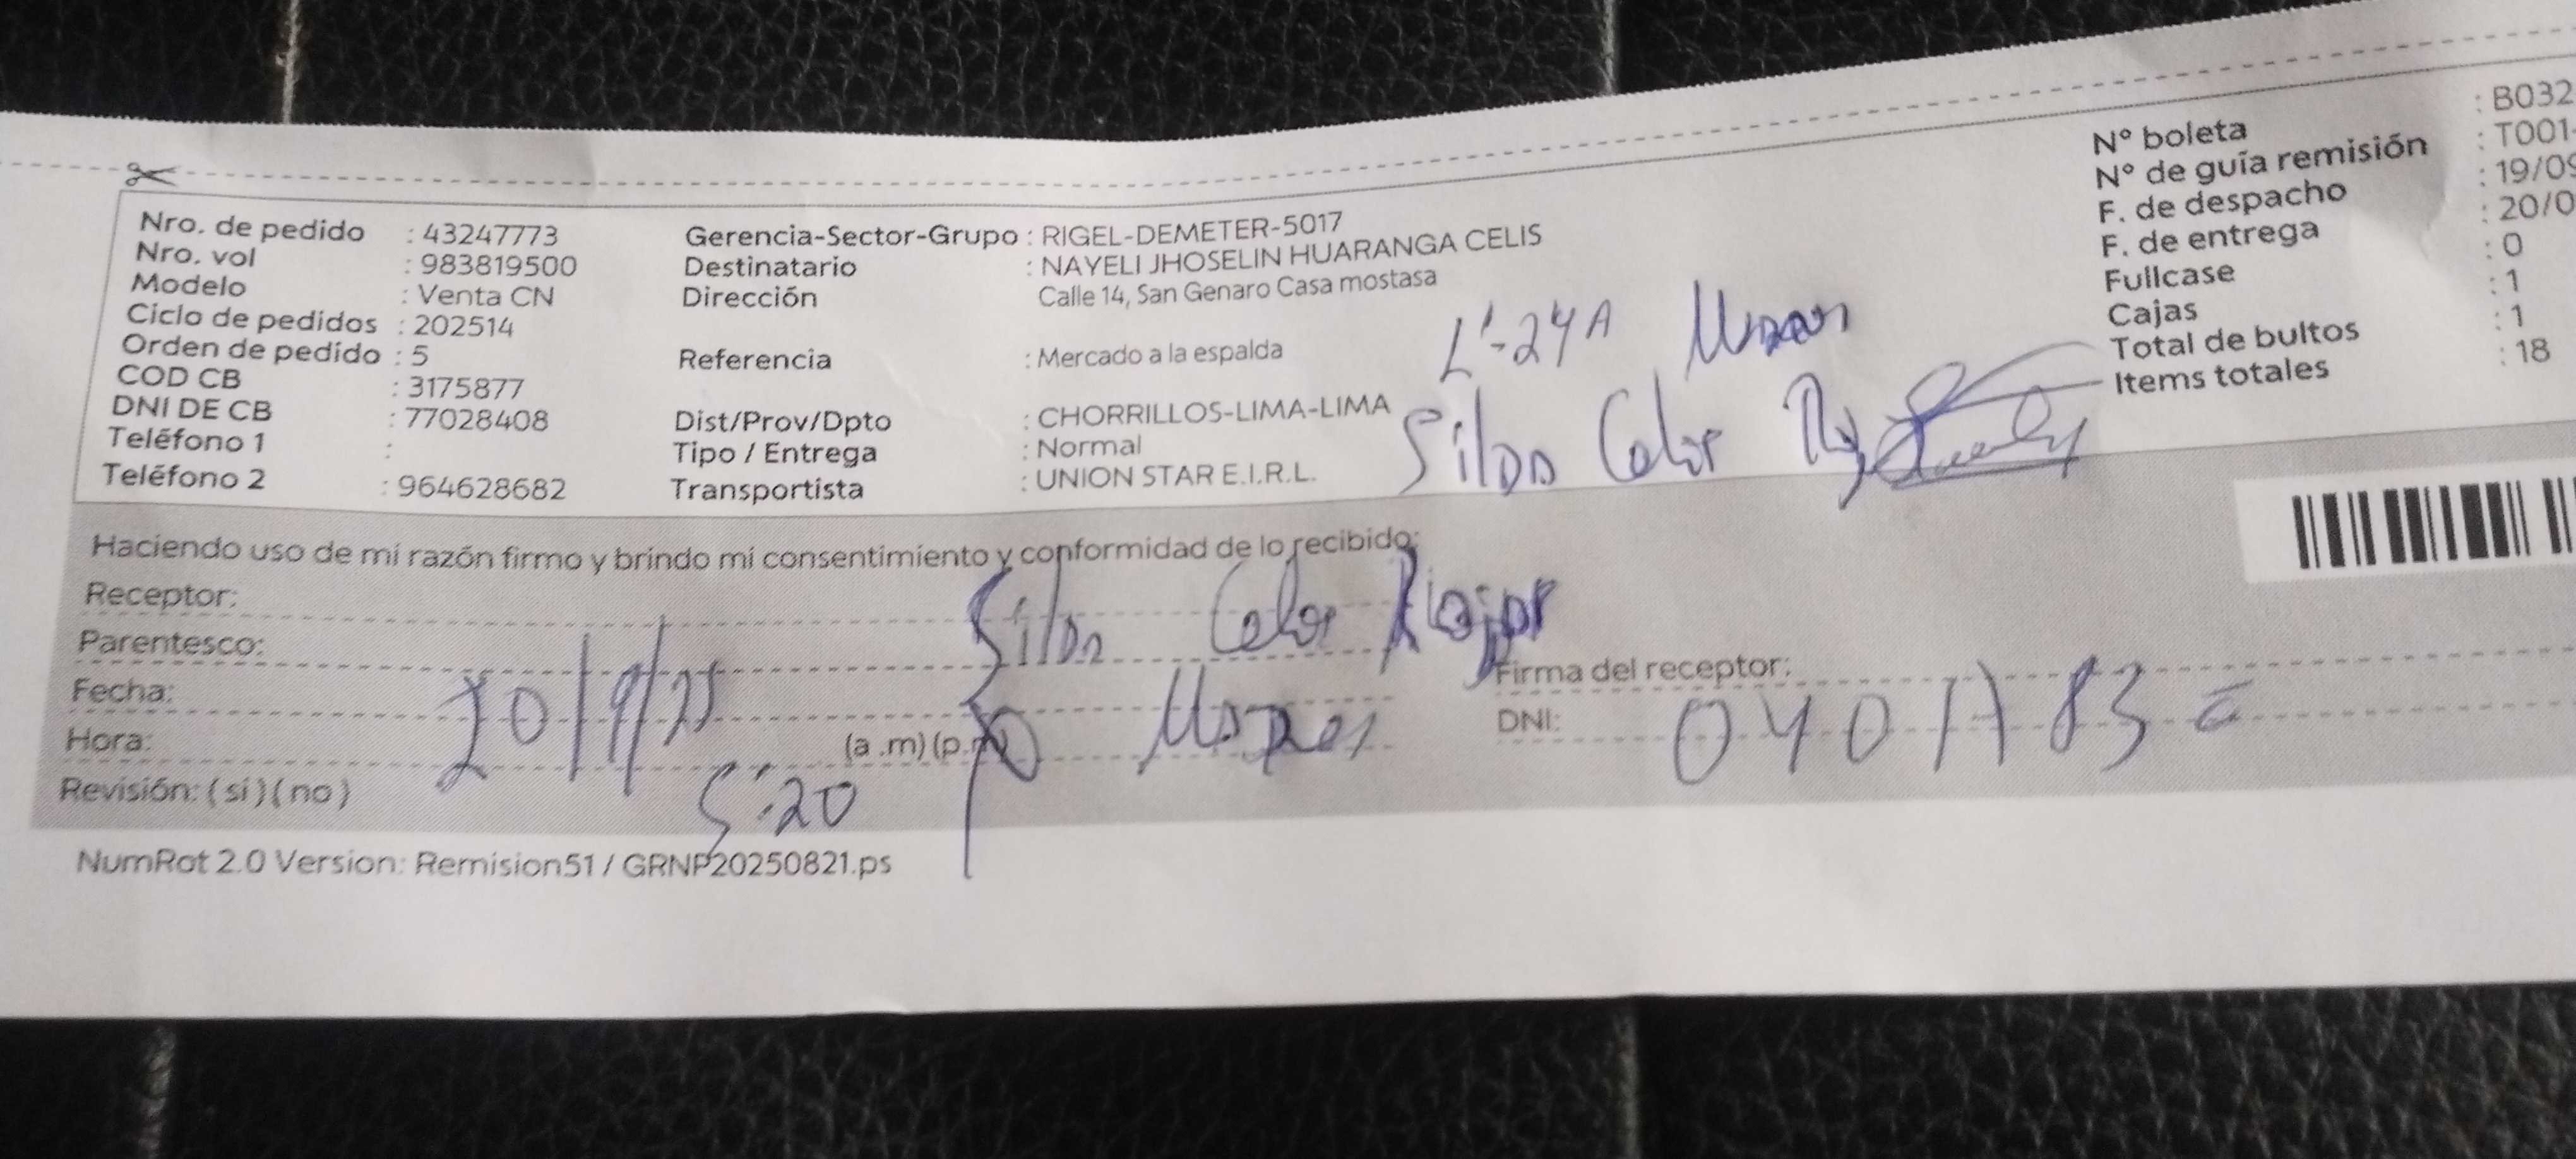 Nro. de pedido : 43247773
Nro. vol : 983819500
Modelo : Venta CN
Ciclo de pedidos : 202514
Orden de pedido : 5
COD CB : 3175877
DNI DE CB : 77028408
Teléfono 1 :
Teléfono 2 : 964628682
Gerencia-Sector-Grupo : RIGEL-DEMETER-5017
Destinatario : NAYELI JHOSELIN HUARANGA CELIS
Dirección Calle 14, San Genaro Casa mostasa
Referencia : Mercado a la espalda
Dist/Prov/Dpto : CHORRILLOS-LIMA-LIMA
Tipo / Entrega : Normal
Transportista : UNION STAR E.I.R.L.
L'-24A
Color
Nº boleta : B032
Nº de guía remisión : T001-
F. de despacho : 19/09
F. de entrega : 20/0
Fullcase : 0
Cajas : 1
Total de bultos : 1
Items totales : 18
Haciendo uso de mi razón firmo y brindo mi consentimiento y conformidad de lo recibido:
Receptor:
Color
Parentesco:
Fecha: 20/9/25
Hora: (a .m) (p.m)
5:20
Revisión: ( si ) ( no )
Firma del receptor:
DNI:
NumRot 2.0 Version: Remision51 / GRNP20250821.ps